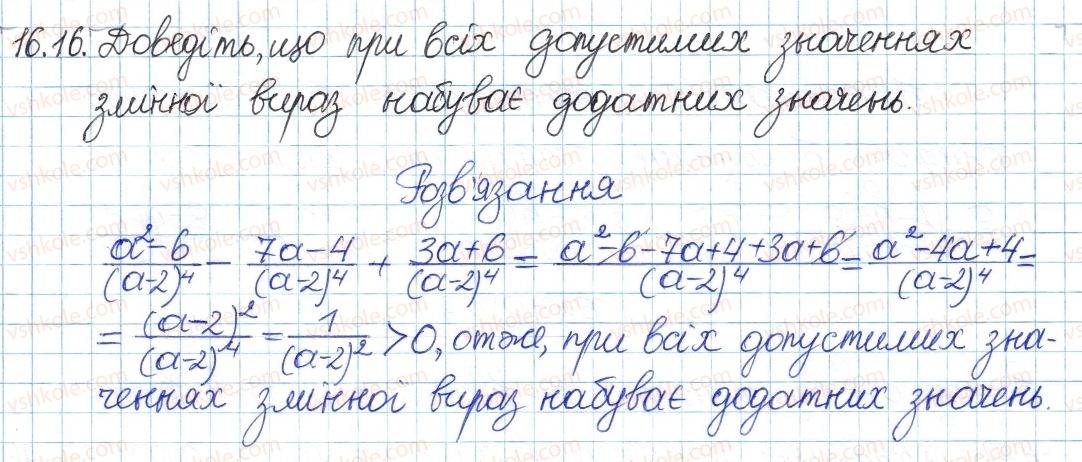 16.16. Доведіть, що при всіх допустимих значеннях
змінної вираз набуває додатних значень.
Розв'язання
(a²-6)/(a-2)⁴ - (7a-4)/(a-2)⁴ + (3a+6)/(a-2)⁴ = (a²-6-7a+4+3a+6)/(a-2)⁴ = (a²-4a+4)/(a-2)⁴ =
= (a-2)²/(a-2)⁴ = 1/(a-2)² > 0, отже, при всіх допустимих зна-
ченнях змінної вираз набуває додатних значень.